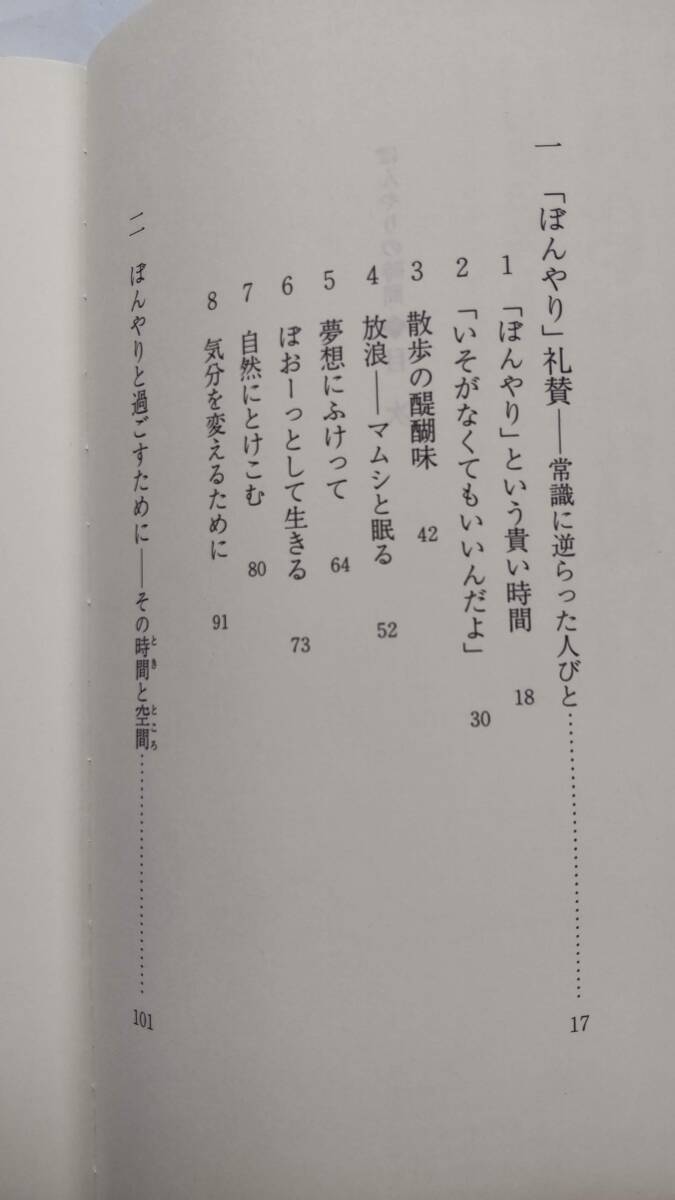 一 「ぼんやり」礼賛――常識に逆らった人びと……………………17
1 「ぼんやり」という貴い時間 18
2 「いそがなくてもいいんだよ」 30
3 散歩の醍醐味 42
4 放浪――マムシと眠る 52
5 夢想にふけって 64
6 ぼおーっとして生きる 73
7 自然にとけこむ 80
8 気分を変えるために 91
二 ぼんやりと過ごすために――その時間と空間……………………101
とき ところ